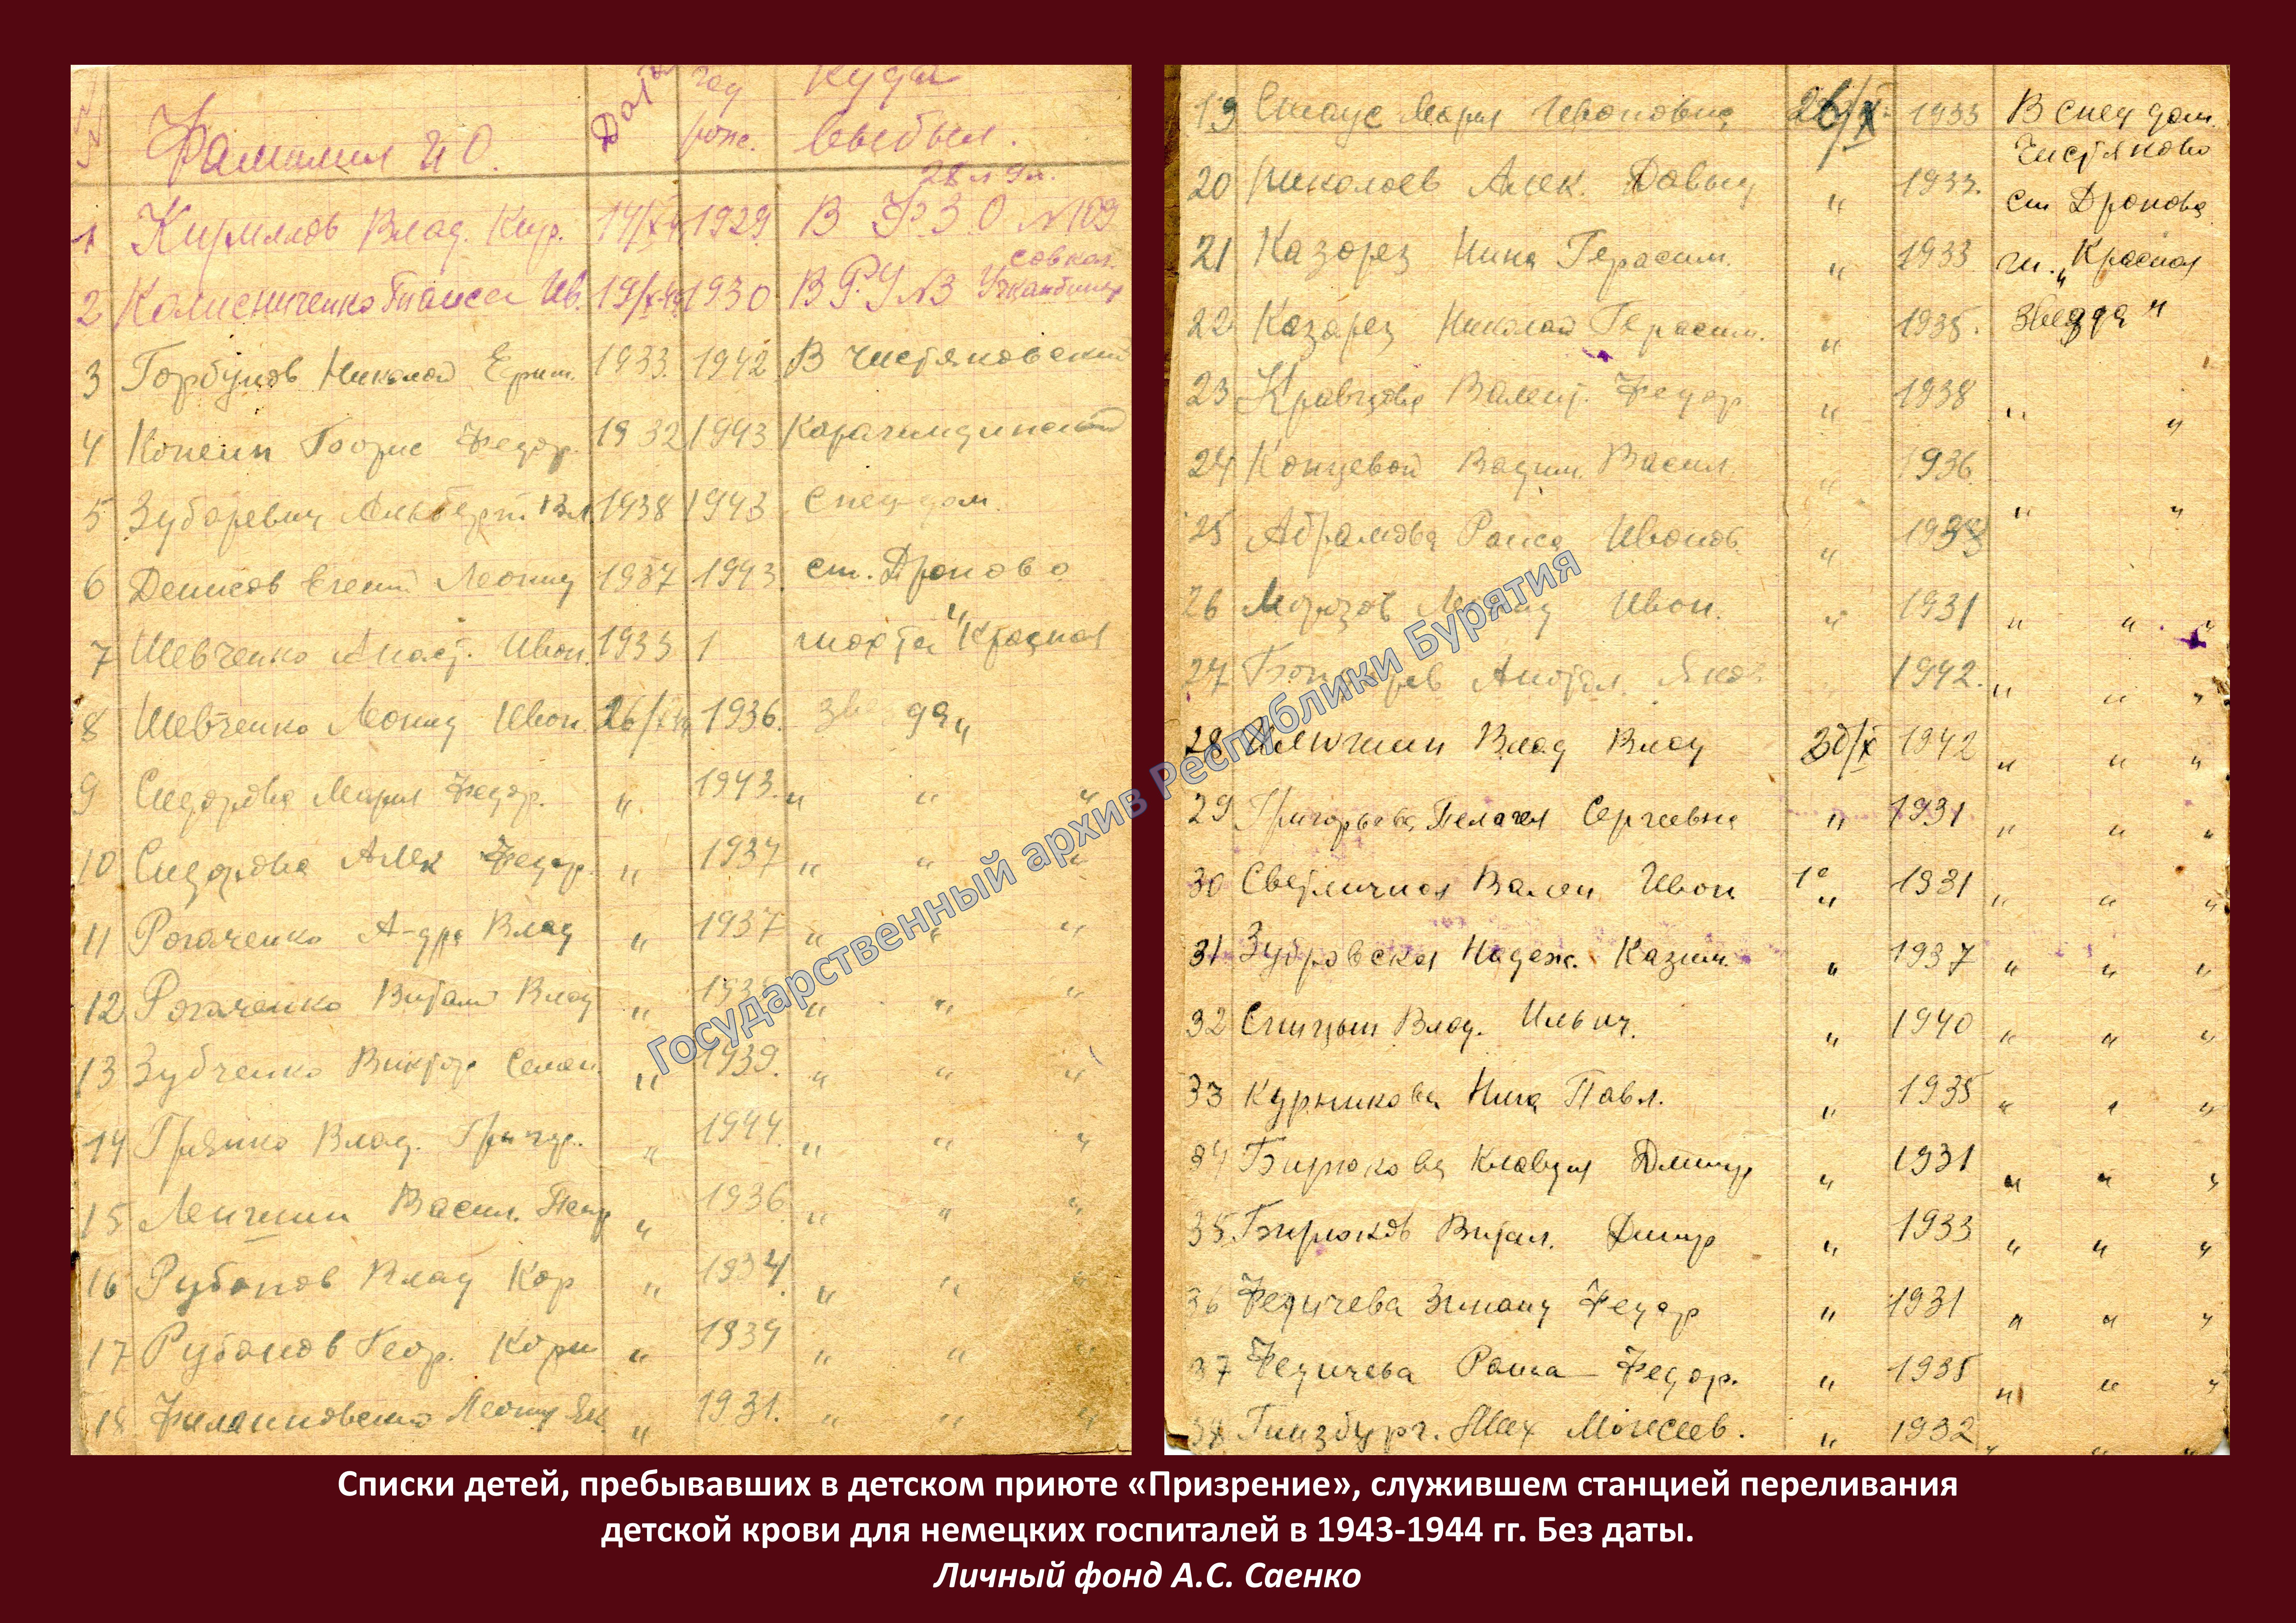 №№ Фамилия И О. Дата год рожс. Куда выбыл.
28 л 9 м.
1 Кирилов Влад. Кир. 14/X-44 1929 В ФЗО №109
2 Ив. 19/X-44 1930 В РУ №3 совхоз.
3 Горбунов Николай Ефим. 1933. 1942 В Чистяковский
4 Копеин Борис Федор. 1932 1943
5 Зубаревич Альберт. Вл 1938 1943 спец-дом.
6 Денисов Евгений Леонид 1937 1943 ст. Дроново
7 Шевченко Анаст. Иван. 1933 1 шахта "Красная
8 Шевченко Леонид Иван. 26/X-44 1936. звезда„
9 Сидорова Мария Федор. „ 1943. „ „ „
10 Сидорова Алек Федор. „ 1937 „ „ „
11 Рогаченко А-дра Влад „ 1937 „ „ „
12 Рогаченко Витали Влад „ „ „ „
13 Зубченко Виктор Семен. „ 1939. „ „ „
14 Влад. Григор. „ 1944. „ „ „
15 Васил. Петр „ 1936. „ „ „
16 Рубанов Влад Кор „ 1934. „ „ „
17 Рубанов Геор. Корн „ 1939 „ „ „
18 Леонид Як „ 1931. „ „ „
19 Мария Ивановна 26/X 1933 В спец дом.
Чистяково
20 Николаев Алек. Давыд „ 1933. ст Дронова
21 Казорез Нина Герасим. „ 1933 ш. „Красная
22 Казорез Николай Герасим. „ 1935. Звезда"
23 Кравцова Валент. Федор „ 1938 „ „
24 Концевой Вадим. Васил. „ 1936. „ „
25 Абрамова Раиса Иванов. „
26 Морозов Леонид Иван. „ 1931 „ „ „
27 Анатол. Яков „ 1942. „ „ „
28 Илюшин Влад Влад 30/X 1942 „ „ „
29 Григорьева Пелагея Сергеевна „ 1931 „ „ „
30 Светличная Вален Иван „ 1931 „ „ „
31 Зубровская Надеж. Казим. „ 1937 „ „ „
32 Спицын Влад. Ильич. „ 1940 „ „ „
33 Курникова Нина Павл. „ 1935 „ „ „
34 Бирюкова Клавдия Дмитр „ 1931 „ „ „
35 Бирюков Витал. Дмитр „ 1933 „ „ „
36 Федичева Зинаид Федор „ 1931 „ „ „
37 Федичева Раиса Федор. „ 1935 „ „ „
38 Гинзбург. Моисеев. „ 1932 „ „ „
Государственный архив Республики Бурятия
Списки детей, пребывавших в детском приюте «Призрение», служившем станцией переливания
детской крови для немецких госпиталей в 1943-1944 гг. Без даты.
Личный фонд А.С. Саенко